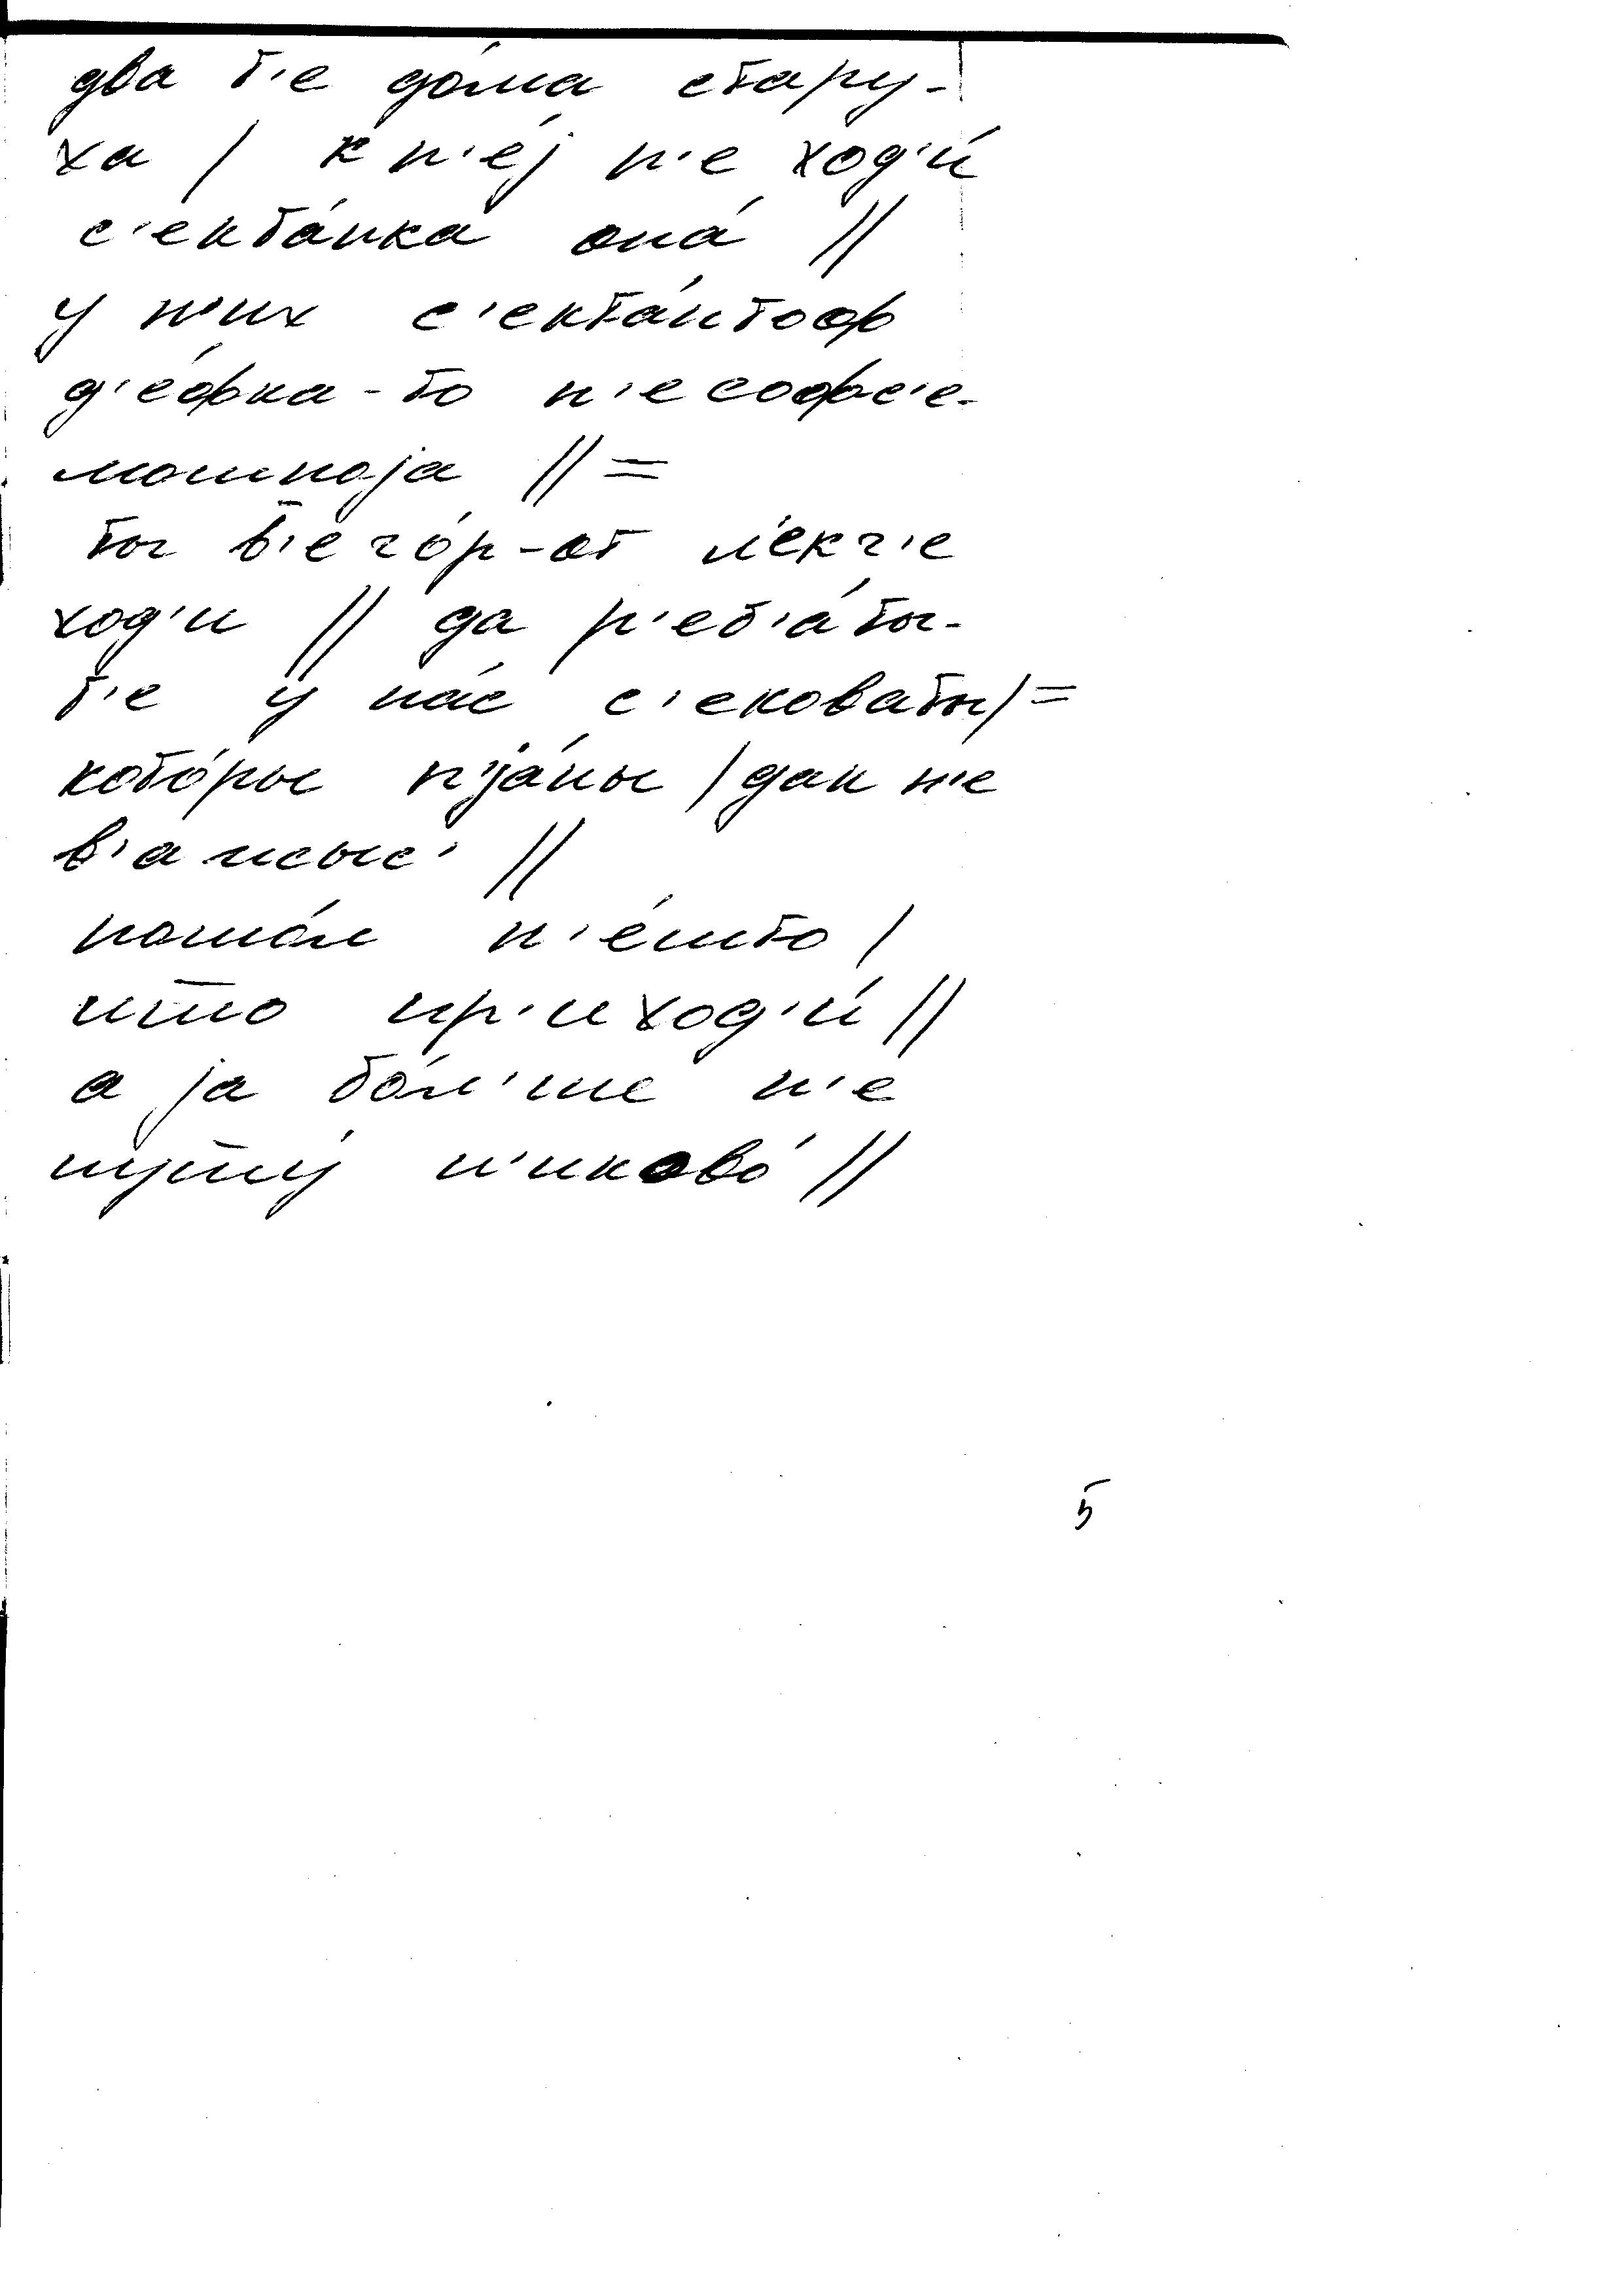 два т'е до́ма стару-
ха / к н'е́j н'е ход'и́
с'екта́нка она́ //
у н'их с'екта́нтоф
д'е́фка-то н'есофс'е-
мошноjа // =
ты в'ечо́р-от л'екч'е
ход'и // да р'еб'а́ты-
т'е у на́с с'ековаты / =
кото́рые п'jа́ны / дак н'е
в'ажыс' //
пошо́л н'е́што /
што пр'иход'и́ //
а jа бо́л'ше н'е
пушшу́ н'иково́ //
5